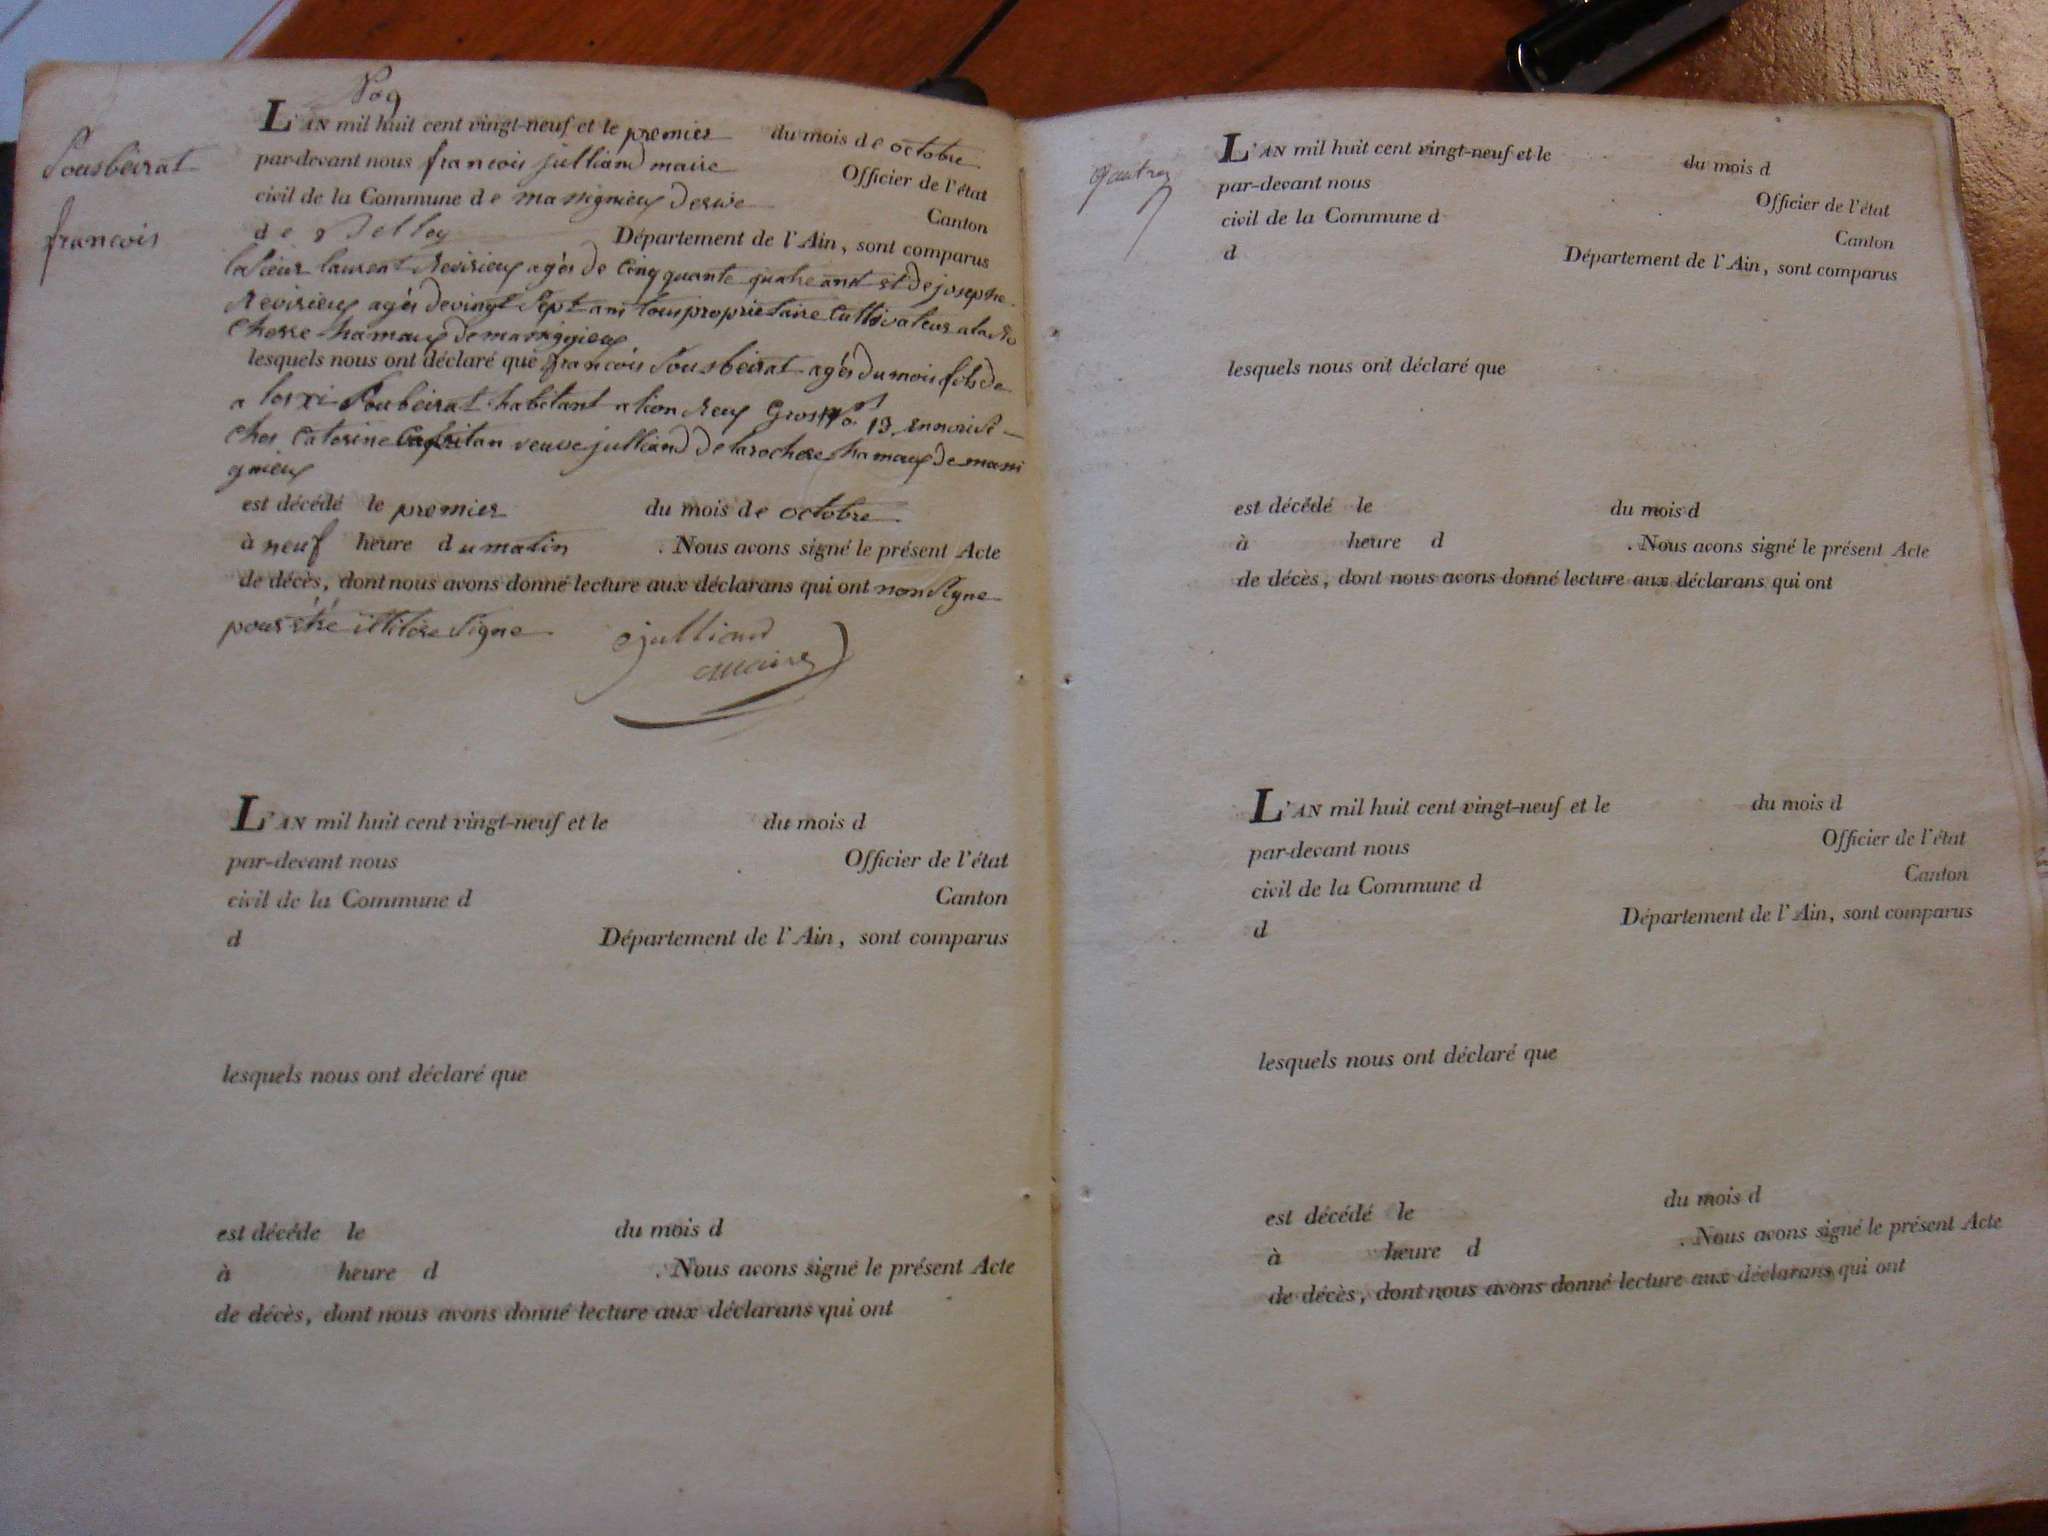 No 9
Sousbeirat
francois
L'AN mil huit cent vingt-neuf et le premier du mois de octobre
par-devant nous francois julliand maire Officier de l'état
civil de la Commune de massignieu derive Canton
de Belley Département de l'Ain, sont comparus
laurent Revirieux agés de cinquante quatre ans et de josephe
Revirieux agés de vingt sept ans tous proprietaire cultivateur a la Ro
chere hamaux de massignieux
lesquels nous ont déclaré que francois Sousbeirat agés du mois fils de
Soubeirat habitant a lion Reux No 13 en nourise
ches caterine veuve julliand de la rochere hamaux de massi
gnieux
est décédé le premier du mois de octobre
à neuf heure du matin . Nous avons signé le présent Acte
de décès, dont nous avons donné lecture aux déclarans qui ont non signe
pour être illitere signe
julliand
maire
L'AN mil huit cent vingt-neuf et le du mois d
par-devant nous Officier de l'état
civil de la Commune d Canton
d Département de l'Ain, sont comparus
lesquels nous ont déclaré que
est décédé le du mois d
à heure d . Nous avons signé le présent Acte
de décès, dont nous avons donné lecture aux déclarans qui ont
L'AN mil huit cent vingt-neuf et le du mois d
par-devant nous Officier de l'état
civil de la Commune d Canton
d Département de l'Ain, sont comparus
lesquels nous ont déclaré que
est décédé le du mois d
à heure d . Nous avons signé le présent Acte
de décès, dont nous avons donné lecture aux déclarans qui ont
L'AN mil huit cent vingt-neuf et le du mois d
par-devant nous Officier de l'état
civil de la Commune d Canton
d Département de l'Ain, sont comparus
lesquels nous ont déclaré que
est décédé le du mois d
à heure d . Nous avons signé le présent Acte
de décès, dont nous avons donné lecture aux déclarans qui ont